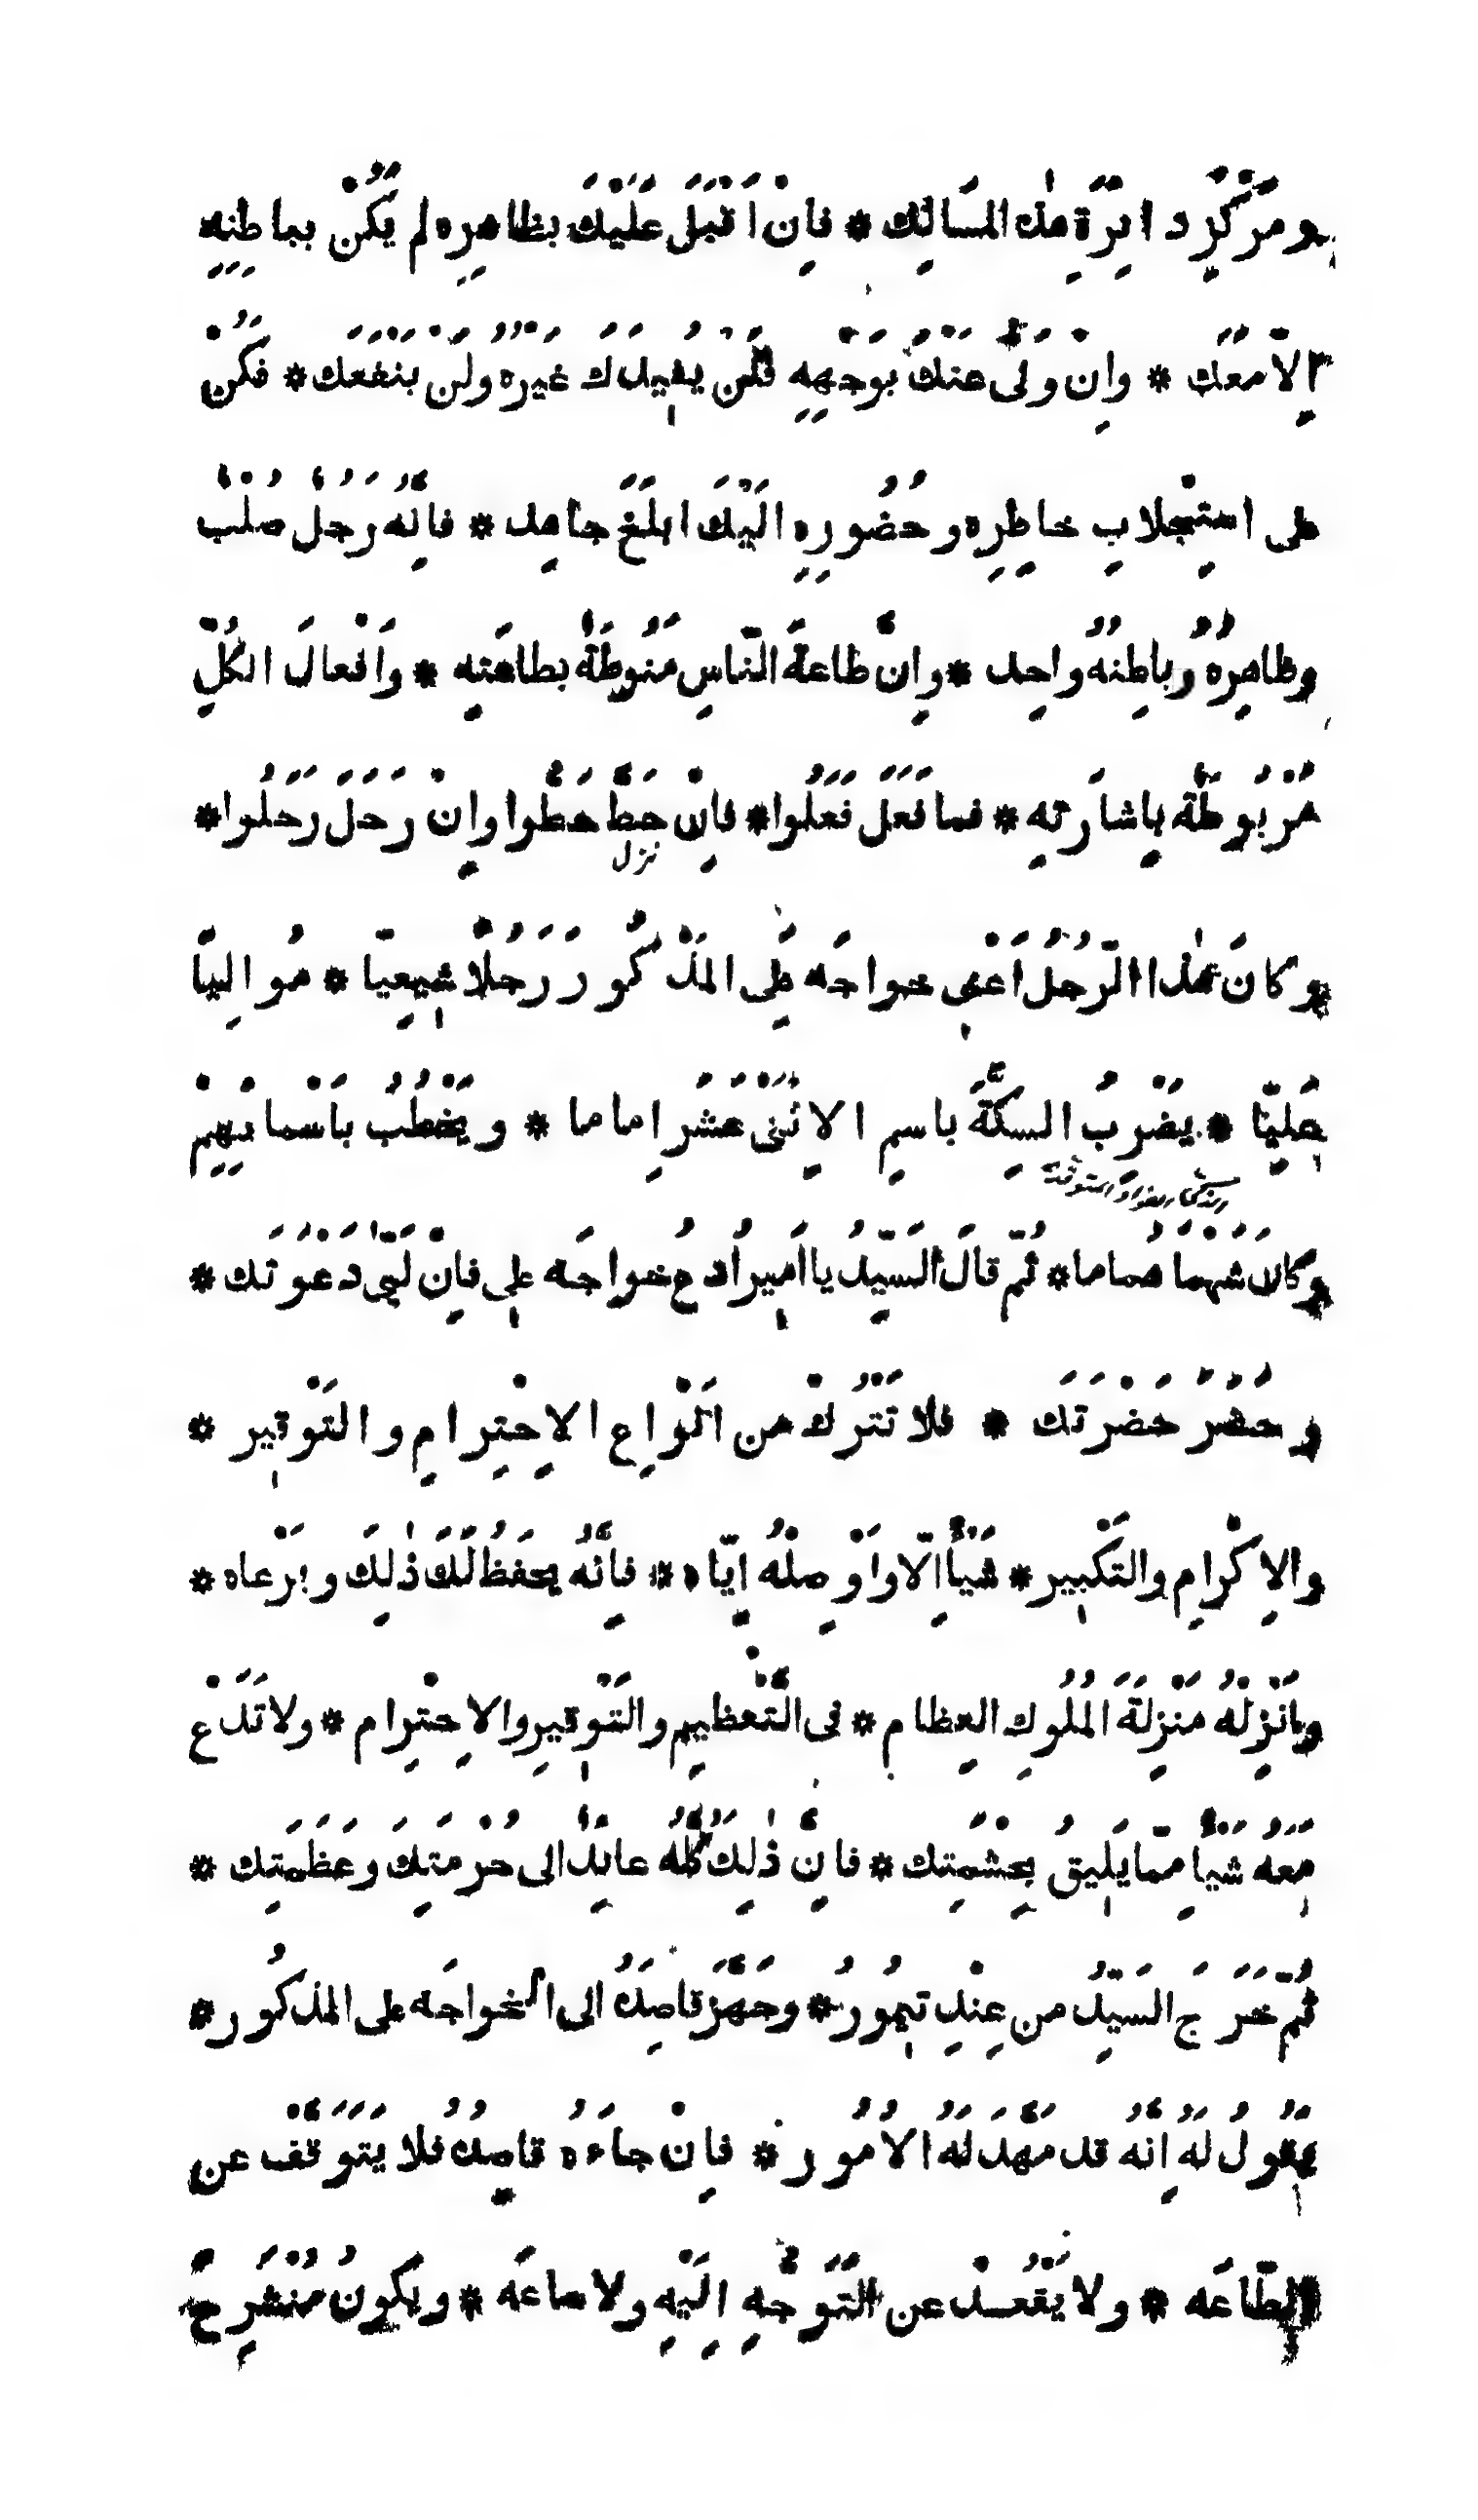 ومَرْكَزُ دائِرَةِ هٰذه المَسَالِك * فاِنْ اَقْبَلَ عَلَيْكَ بظاهِرِه لم يَكُنْ بباطِنِهِ
اِلاّ مَعَك * واِنْ وَلّى عَنْكَ بوَجْهِهِ فلَنْ يُفيدَكَ غَيْرُه ولَنْ يَنْفَعَك * فكُنْ
على اسْتِجْلابِ خاطِرِه وحُضُورِهِ اِلَيْكَ ابلَغَ جاهِد * فاِنَّهُ رَجُلٌ صُلْبٌ
وظاهِرُهُ وباطِنُهُ واحِد * واِنّ طاعَةَ النّاسِ مَنُوطَةٌ بطاعَتِهِ * واَفْعالَ الكُلِّ
مَرْبُوطَةٌ باِشارَتِهِ * فما فَعَلَ فَعَلُوا * فاِنْ حَطَّ حَطُّوا واِنْ رَحَلَ رَحَلُوا *
نزل
وكانَ هٰذا الرّجُلُ اَعْنى خواجَه عَلِى المَذْكُورَ رَجُلاً شيعِيّا * مُوالِيًا
عَلِيّا * يَضْرِبُ السِكَّةَ باسمِ الاِثْنَىْ عَشَرَ اِماما * ويَخْطُبُ باَسْمائِهِمْ
وكانَ شَهْمًا هُماما * ثُمّ قالَ السّيِّدُ يا اَميرُ ادعُ خواجَه على فاِنْ لَبّى دَعْوَتَك *
وحَضَرَ حَضْرَتَك * فلا تَتْرُكْ من اَنْواعِ الاِحْتِرامِ والتّوْقير *
والاِكْرامِ والتّكْبير * شَيْأً اِلاّ واَوْصِلْهُ اِيّاه * فاِنَّهُ يحفَظُ لَكَ ذٰلِكَ ويَرْعاه *
واَنْزِلْهُ مَنْزِلَةَ المُلُوكِ العِظام * فى التَّعْظيمِ والتّوْقيرِ والاِحْتِرام * ولا تَدَعْ
مَعَهُ شَيْأً مِمّا يَليقُ بحِشْمَتِك * فاِنّ ذٰلِكَ كُلَّهُ عائِدٌ الى حُرْمَتِكَ وعَظَمَتِك *
ثُمّ خَرَجَ السّيِّدُ من عِنْدِ تيمُورُ * وجَهَّزَ قاصِدَهُ الى الخواجَه على المذكُور *
يقُولُ لَهُ اِنَّهُ قد مَهَّدَ لَهُ الاُمُور * فاِنْ جاءَهُ قاصِدُهُ فلا يَتَوَقَّفْ عن
الطّاعَه * ولا يَقْعُدْ عن التّوَجُّهِ اِلَيْهِ ولا ساعَه * ويكونُ مُنْشَرِحَ